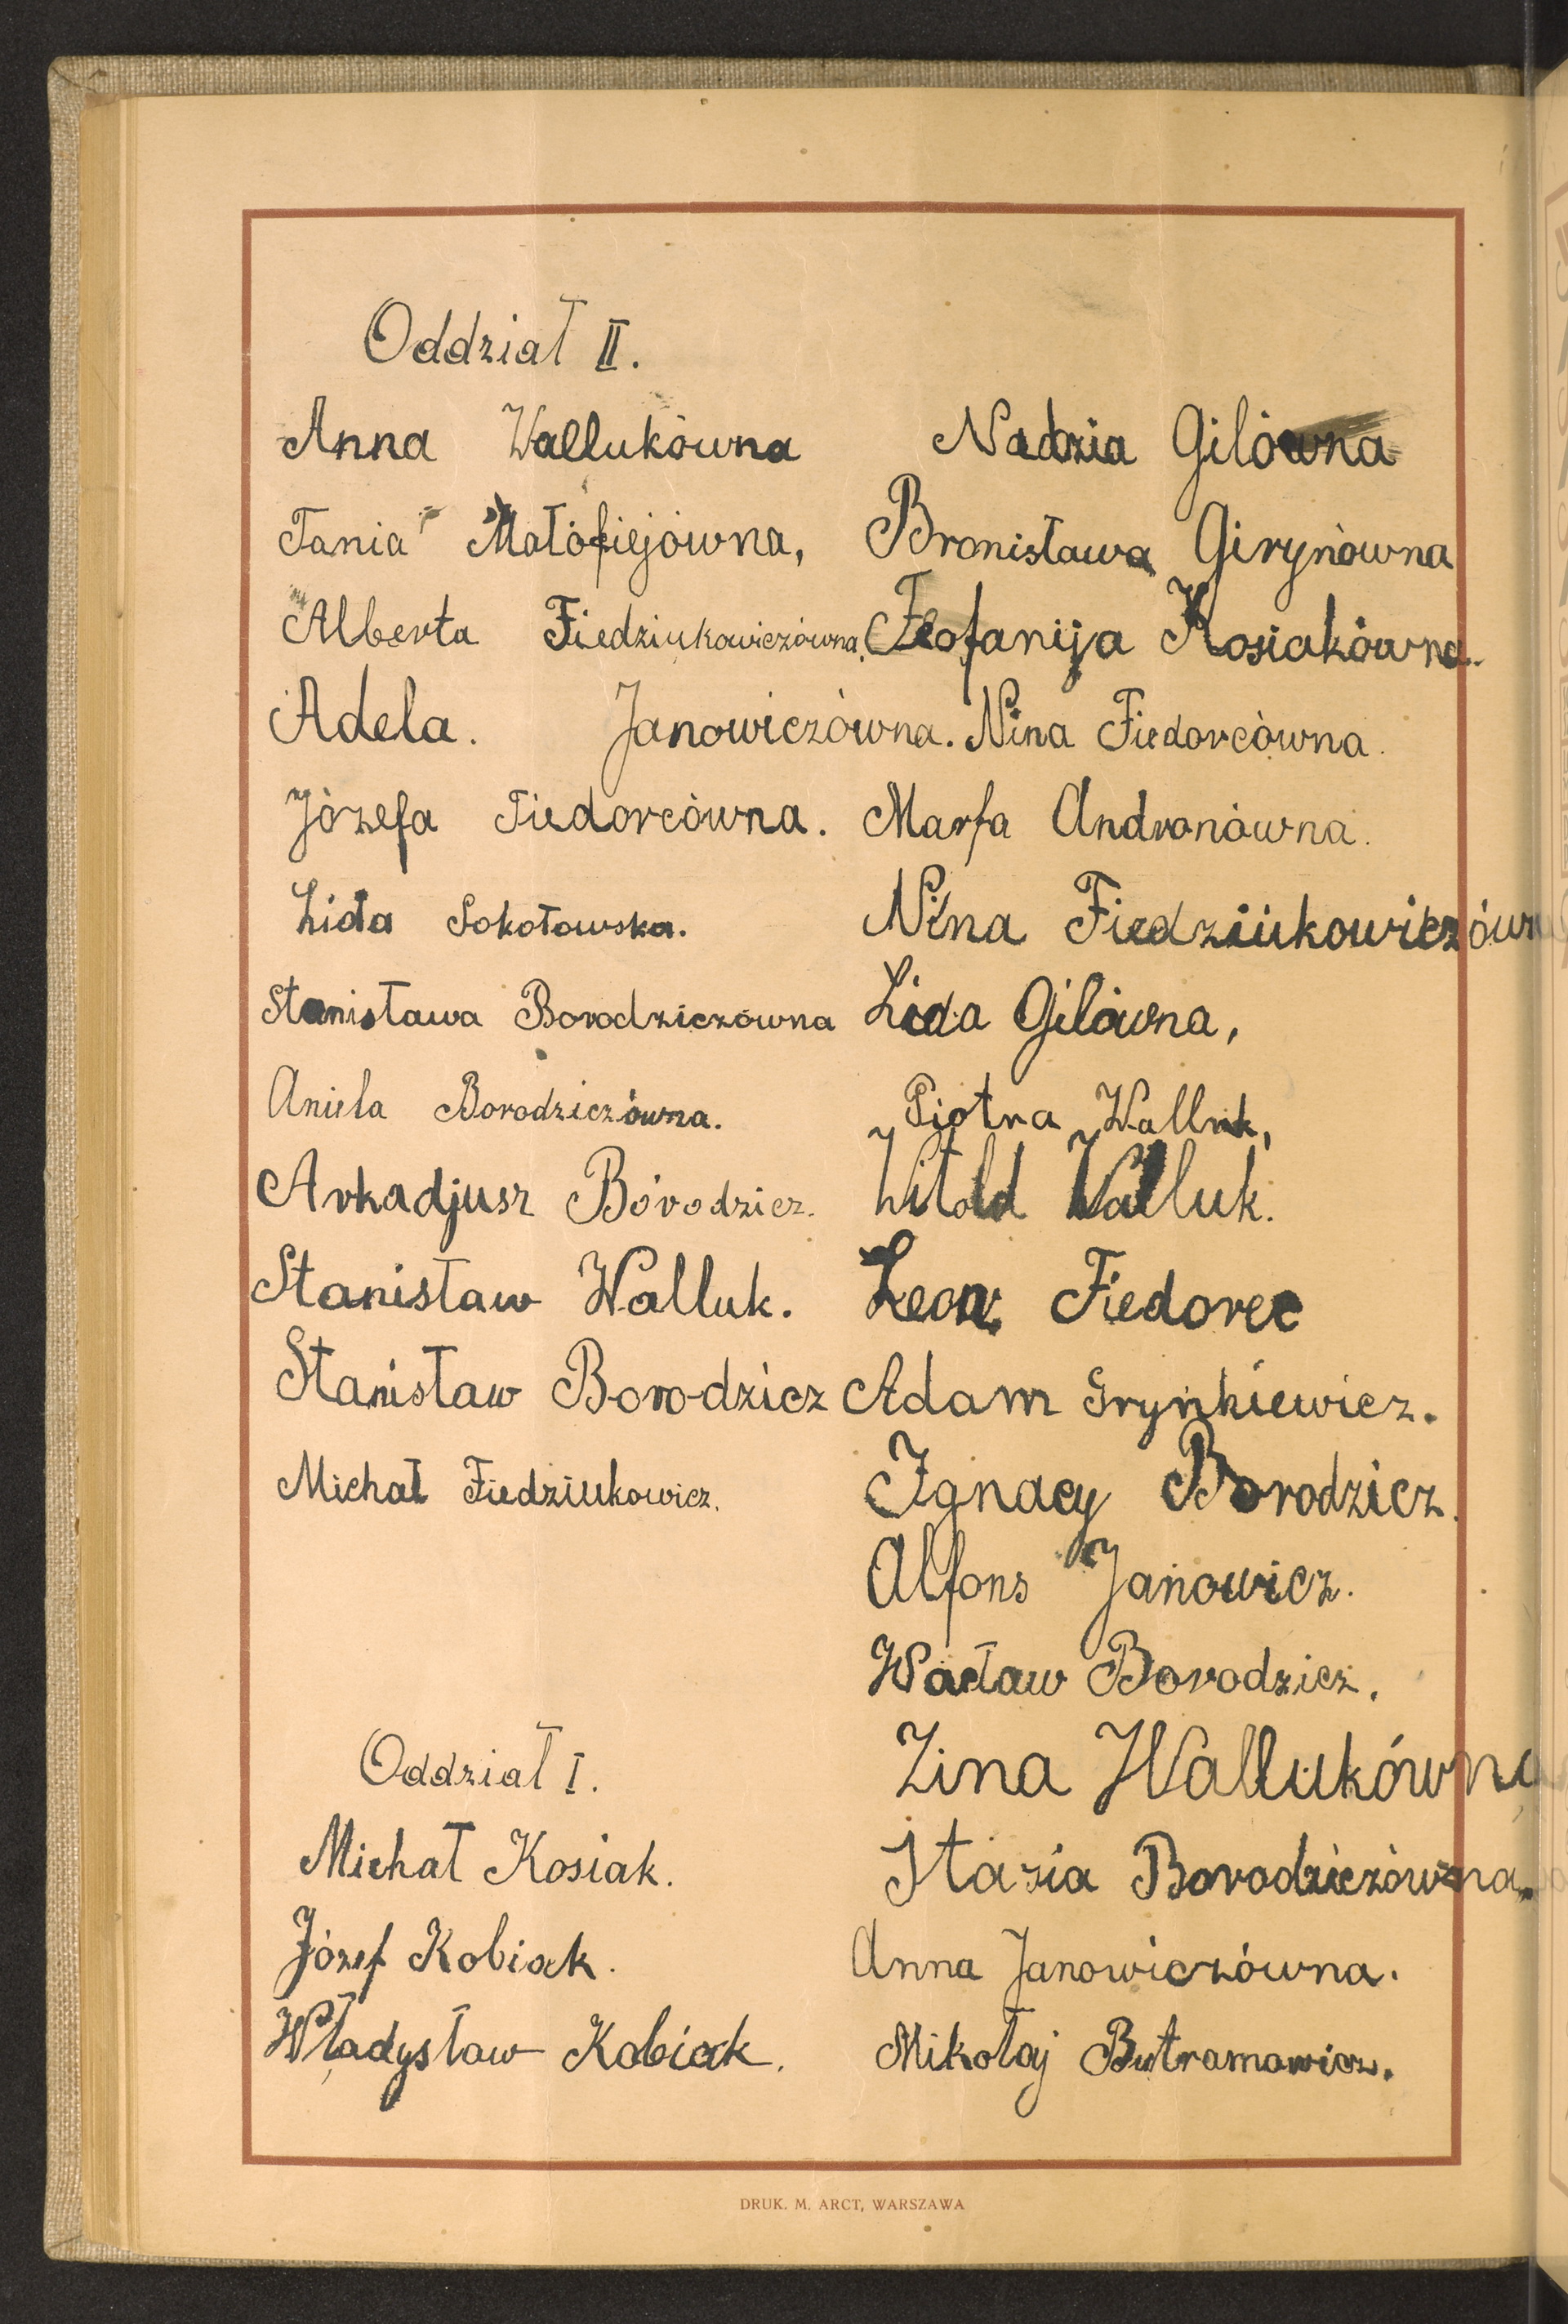 Oddział II.
Anna Wallukówna
Tania Małofiejówna,
Alberta Fiedziukowiczówna.
Adela. Janowiczówna.
Józefa Fiedorcówna.
Lida Sokołowska.
Stanisława Borodziczówna
Aniela Borodziczówna.
Arkadjusz Borodzicz.
Stanisław Walluk.
Stanisław Borodzicz
Michał Fiedziukowicz.
Oddział I.
Michał Kosiak.
Józef Kobiak.
Władysław Kobiak.
Nadzia Gilówna
Bronisława Girynówna
Teofanija Kosiakówna.
Nina Fiedorcówna.
Marfa Andronówna.
Nina Fiedziukowiczówn
Lida Gilówna,
Piotra Walluk,
Witold Walluk.
Leon Fiedorec
Adam Grynkiewicz.
Ignacy Borodzicz.
Alfons Janowicz.
Wacław Borodzicz.
Zina Wallukówna
Stazia Borodziczówna.
Anna Janowiczówna.
Mikołaj Butramowicz.
DRUK. M. ARCT, WARSZAWA